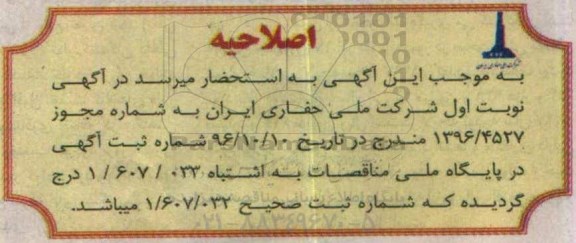 اصلاحیه
به موجب این آگهی به استحضار میرسد در آگهی
نوبت اول شرکت ملی حفاری ایران به شماره مجوز
۱۳۹۶/۴۵۲۷ مندرج در تاریخ ۹۶/۱۰/۱۰ شماره ثبت آگهی
در پایگاه ملی مناقصات به اشتباه ۰۳۳ / ۶۰۷ / ۱ درج
گردیده که شماره ثبت صحیح ۱/۶۰۷/۰۳۲ میباشد.
۰۲۱-۸۸۳۴۹۶۷۰-۵